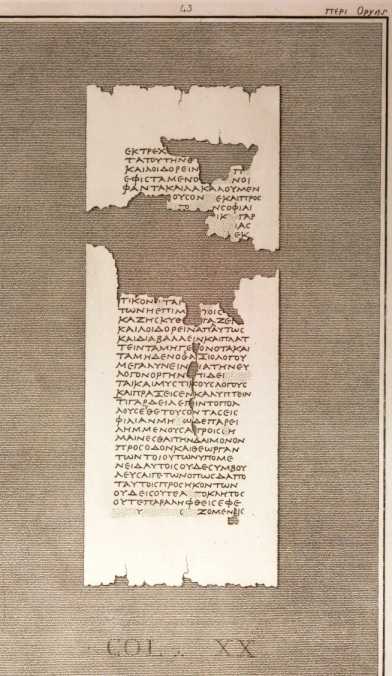 43
ΠΕΡΙ ΟΡΓΗΣ
ΕΚΤΡΕΧ
ΤΑΤΟΥΤΗΝΕ
ΚΑΙΛΟΙΔΟΡΕΙΝ
ΕΦΙΣΤΑΜΕΝΟ ΝΟΙ
ΦΑΝΤΑΚΑΙΑΑΚΑΛΟΥΜΕΝ
ΟΥΣΟΝ ΕΚΑΙΠΡΟΣ
ΝΣΟΦΙΑΙ
ΙΚ ΓΑΡ
ΙΑΣ
ΕΚ
ΤΙΚΟΝ ΤΑΡ
ΤΩΝΗΕΠΙΜ ΠΟΙΣ
ΚΑΖΗΣΚΥΘ ΓΑΖΟ
ΚΑΙΛΟΙΔΟΡΕΙΝΑΠΑΥΤΩΣ
ΚΑΙΔΙΑΒΑΛΛΕΙΝΚΑΙΠΛΑΤ
ΤΕΙΝΤΑΜΗΓΕΓΟΝΟΤΑΚΑΙ
ΤΑΜΗΔΕΝΟΣΑΞΙΟΛΟΓΟΥ
ΜΕΓΑΛΥΝΕΙΝΔΙΑΤΗΝΕΥ
ΛΟΓΟΝΟΡΓΗΝ ΤΙΔΕΙ
ΤΑΙΚΑΙΜΥΣΤΙΚΟΥΣΛΟΓΟΥΣ
ΚΑΙΠΡΑΞΕΙΣΕΚΚΑΛΥΠΤΕΙΝ
ΤΙΓΑΡΔΕΙΛΕΓΕΙΝΤΟΠΟΛ
ΛΟΥΣΕΘΕΤΟΥΣΟΝΤΑΣΕΙΣ
ΦΙΛΙΑΝΜΗ ΩΔΕΠΑΡΕΙ
ΛΗΜΜΕΝΟΥΣΑΓΡΟΙΣΕΗ
ΜΑΙΝΕΣΘΑΙΤΗΝΔΑΙΜΟΝΟΝ
ΠΡΟΣΟΔΟΝΚΑΙΘΕΩΡΓΑΝ
ΤΩΝΤΟΙΟΥΤΩΝΥΠΟΜΕ
ΝΕΙΔΑΥΤΟΙΣΟΥΔΕΣΥΜΒΟΥ
ΛΕΥΣΑΙΓΕΤΩΝΟΠΩΣΔΑΠΟ
ΤΑΥΤΟΙΣΠΡΟΣΗΚΟΝΤΩΝ
ΟΥΔΕΙΣΟΥΤΕΑ ΠΟΚΛΗΤΟΣ
ΟΥΤΕΠΑΡΑΛΗΦΘΕΙΣΕΦΕ
Υ Σ ΖΟΜΕΝΕΙΣ
COL. XX